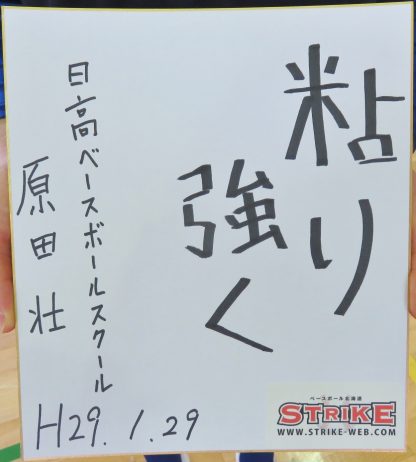 粘り
強く
日高ベースボールスクール
原田壮
H29.1.29
ベースボール北海道
STRIKE
WWW.STRIKE-WEB.COM